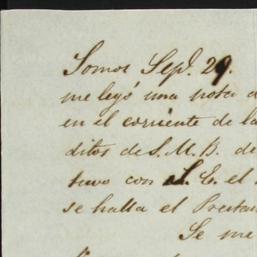 Somos Sep. 29.
me leyó una nota d
en el corriente de la
ditos de S. M. B. de
tuvo con S. E. el
se halla el Prestam
Se me